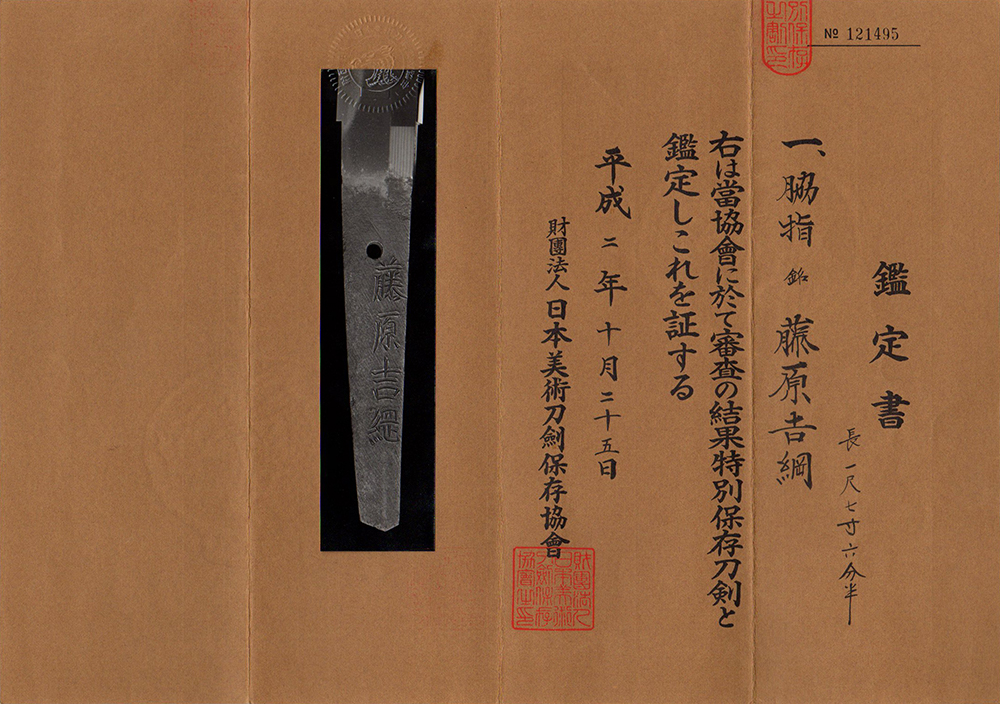 № 121495
鑑定書
長一尺七寸六分半
一、脇指 銘 藤原吉綱
右は當協會に於て審査の結果特別保存刀剣と
鑑定しこれを証する
平成二年十月二十五日
財團法人日本美術刀劍保存協會
財團法人
日本美術
刀劍保存
協會之印
藤原吉綱